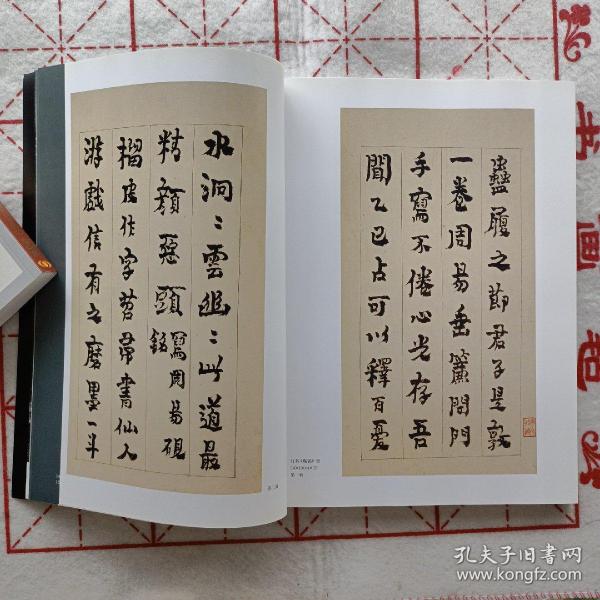 蠱履之節君子是敦
一卷周易垂簾閤門
手寫不倦心光存吾
聞乙巳占可以釋百憂
水洞〻雲幽〻此道最
精頤惡顕寫周易硯銘
榴皮作字若弗書仙人
游戲信有之磨墨一斗
第一幀
孔夫子旧书网
www.kongfz.com